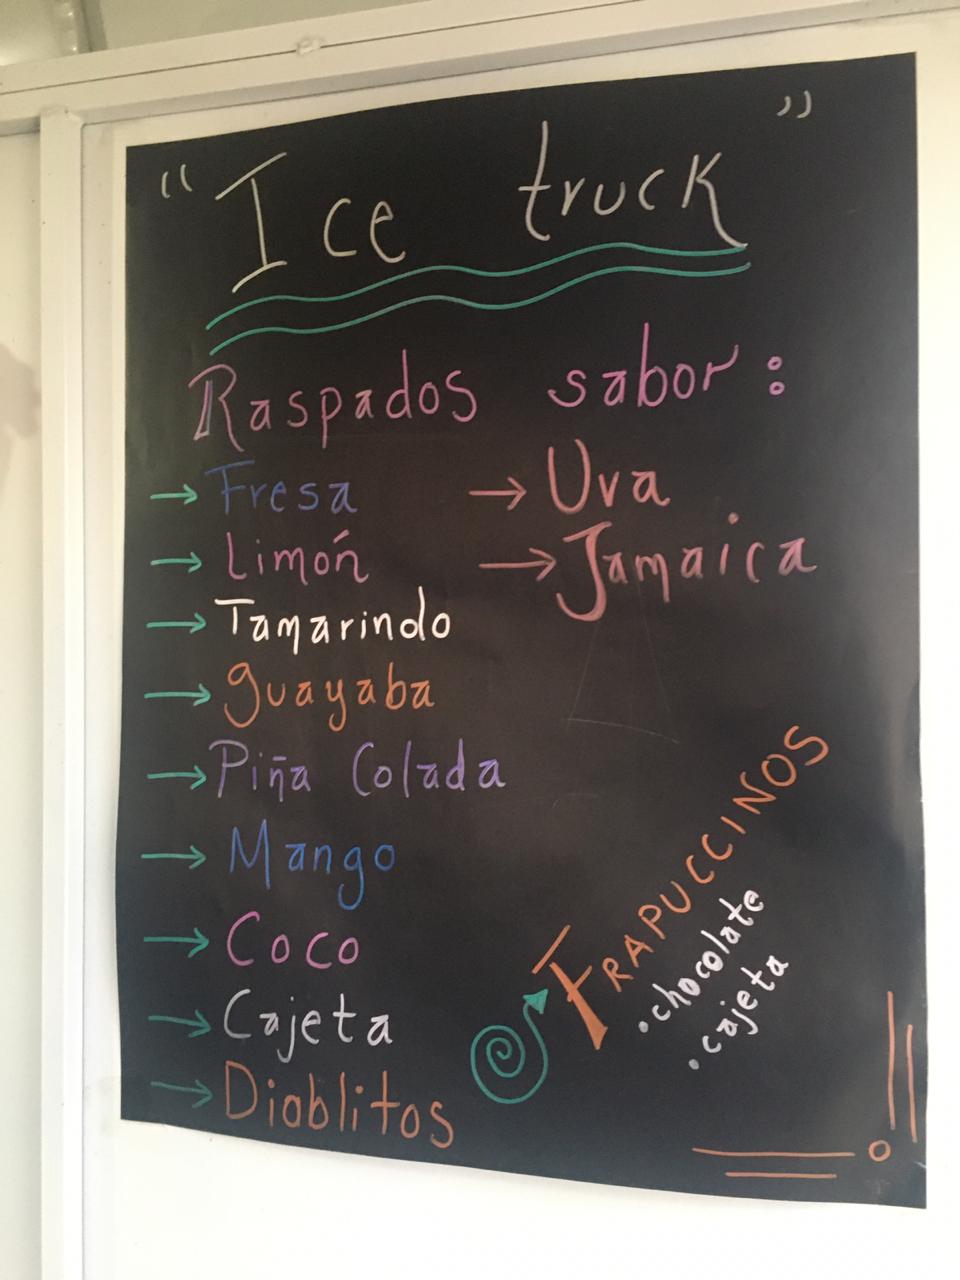 "Ice truck"
Raspados sabor:
→ Fresa
→ Limón
→ Tamarindo
→ guayaba
→ Piña Colada
→ Mango
→ Coco
→ Cajeta
→ Diablitos
→ Uva
→ Jamaica
FRAPUCCINOS
• chocolate
• cajeta